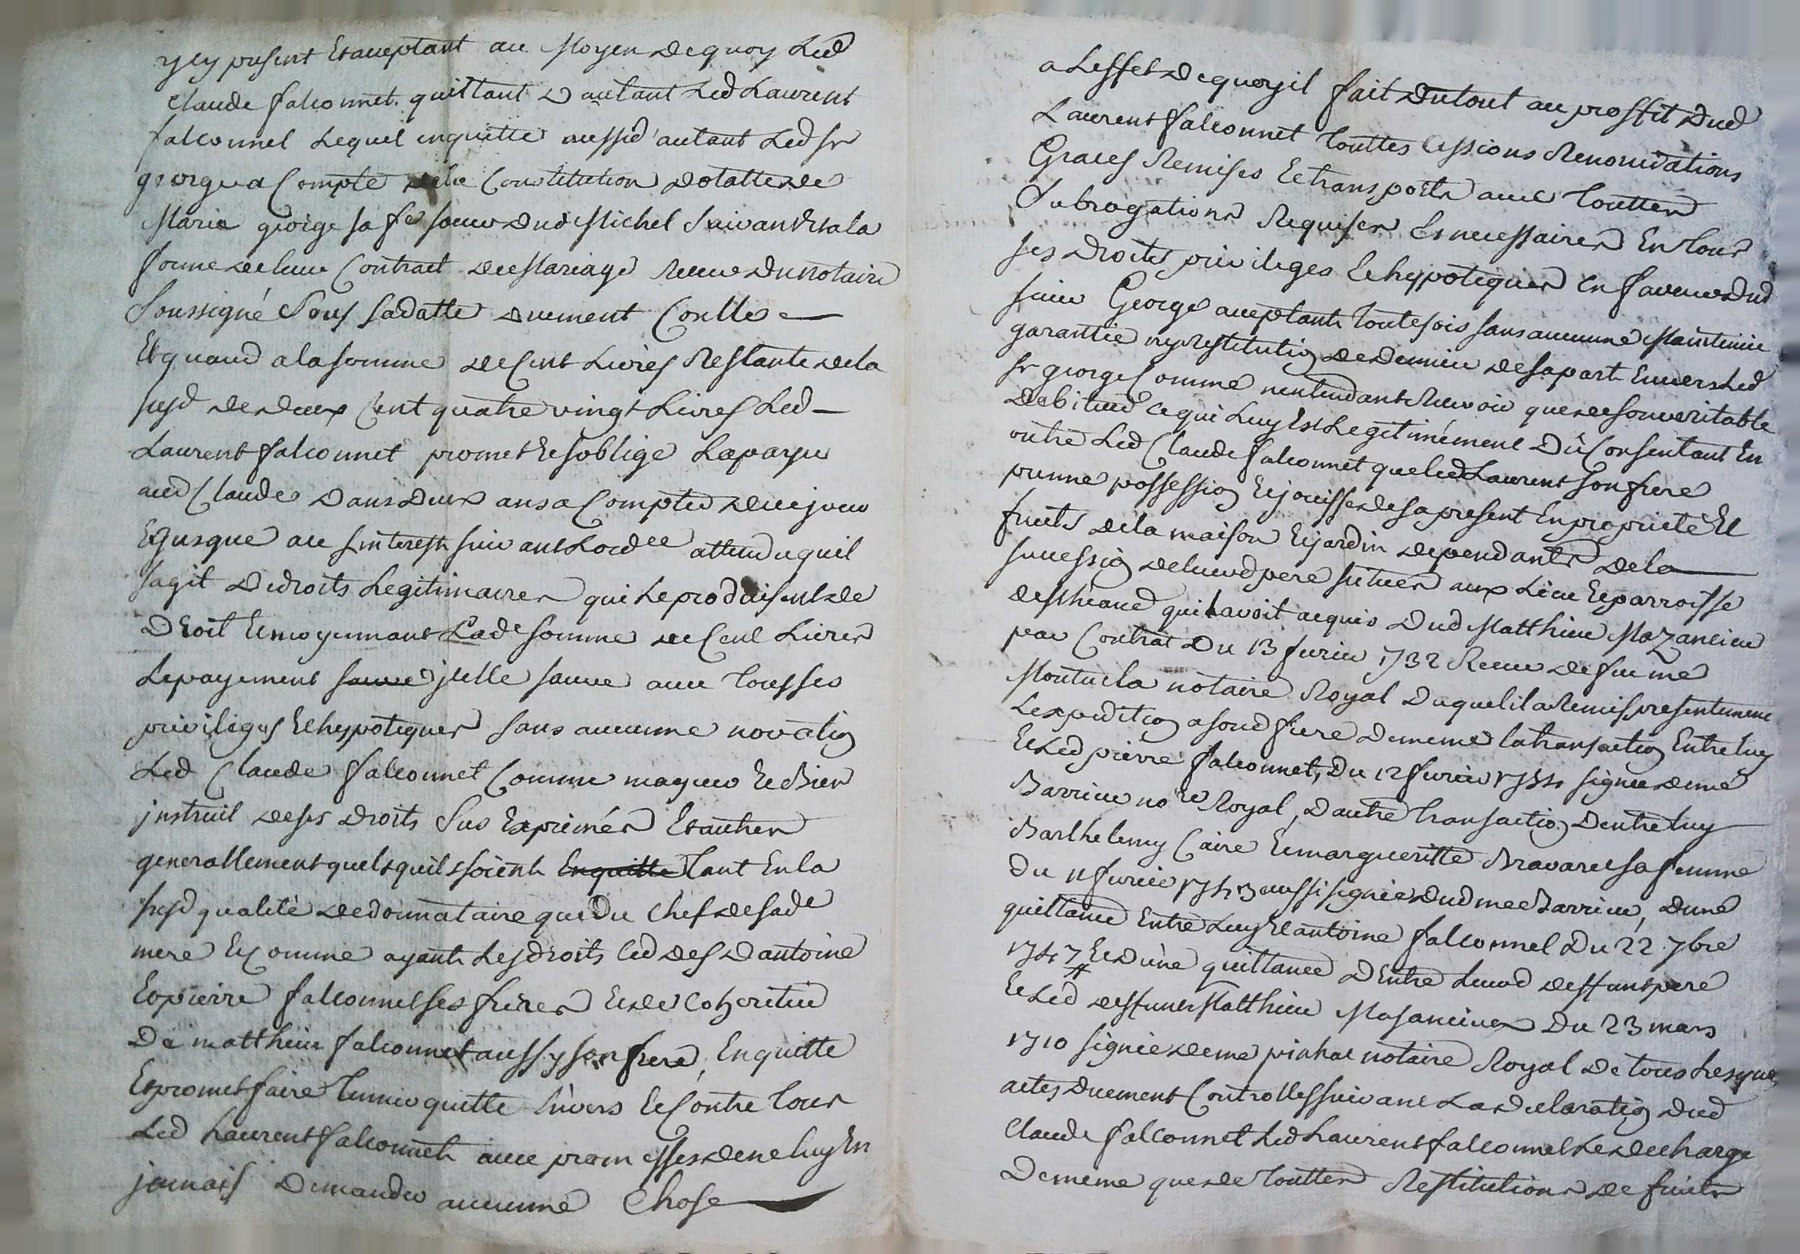 ycy present Et acceptant au Moyen dequoy Led
Claude falconnet quittant Dautant Led Laurent
falconnet Lequel enquitte aussid'autant Led sr
george a Compte dela Constitution dotalle de
Marie george sa fe soeur dud Michel Suivant Et a la
forme de leur Contrat de Mariage Receu du notaire
Soussigné Sous sa datte duement Conllé
Et quand a la somme de Cent Livres Restante de la
susd de deux Cent quatre vingt Livres Led
Laurent falconnet promet Et soblige La payer
aud Claude Dans deux ans a Compter de ce jour
Et jusque au sinterest suivant Lordce attendu quil
sagit De droits Legitimaires qui Le produisent de
Droit Et moyennant Lade somme de Cent Livres
Le payement sauve jcelle sauve avec Touttes
privileges Et hypoteques sans aucune novatio
Led Claude falconnet Comme majeur Et Bien
jnstruit de ses droits Sus Exprimés Et autres
generallement quels quils soient Enquitte Tant En la
susd qualité de donnataire que du Chef de sade
mere Et Comme ayant Les droits Ced des Dantoine
Et pierre falconnet ses freres Et de Coheritier
De matthieu falconnet aussy son frere, Enquitte
Et promet faire Tenir quitte Envers Et Contre Tous
Led Laurent falconnet avec promesses de ne luy En
jamais Demander aucune Chose
a Leffet dequoy il fait du tout au proffit dud
Laurent falconnet Touttes Cessions Renonciations
Graces Remises Et transports avec Touttes
Subrogations Requises Et necessaires En Tous
ses Droits privileges Et hypoteques En faveur dud
sieur George acceptant Toutefois sans aucune Maintenue
garantie ny Restitutio de deniers de sa part Envers Led
sr george Comme nentendant Recevoir que de son veritable
debiteur Ce qui Luy Est Legitimement Dû Consentant En
outre Led Claude falconnet que led Laurent son frere
prenne possessio Et jouisse des a present En proprieté Et
fruits de la maison Et jardin dependants de la
successio de leurd pere situés aux Lieu Et parroisse
de quil avoit acquis Dud Matthieu Mazancieu
par Contrat Du 13 fevrier 1732 Receu de feu me
Montucla notaire Royal Duquel il a Remis presentement
Lexpeditio a son d frere De meme la transactio Entre luy
Et Led pierre falconnet, Du 12 fevrier signée de me
Barrieu nore Royal, Dautre Transactio Dentre luy
Barthelemy Caire Et marguerite Bravaret sa femme
du 11 fevrier 1743 aussi signée dud me Barrieu, dune
quittance Entre Luy Et antoine falconnet Du 22 7bre
1747 Et dune quittance dEntre Leurd deffunt pere
Et Led deffunt Matthieu Masancieu Du 23 mars
1710 signée de me pinhac notaire Royal De tous Lesques
actes duement Controllés suivant La declaratio dud
Claude falconnet Led Laurent falconnet Le decharge
De meme que de Touttes Restitutions de fruits